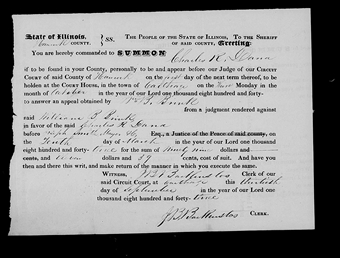 State of Illinois,
Hancock COUNTY.
SS.
THE PEOPLE OF THE STATE OF ILLINOIS, TO THE SHERIFF
OF SAID COUNTY, Greeting:
You are hereby commanded to SUMMON Charles R. Dana
if to be found in your County, personally to be and appear before our Judge of our CIRCUIT
COURT of said county of Hancock on the first day of the next term thereof, to be
holden at the COURT HOUSE, in the town of Carthage on the Monday in the
month of October in the year of our Lord one thousand eight hundred and forty-
to answer an appeal obtained by
from a judgment rendered against
said William
in favor of the said Charles R. Dana
before Joseph Smith Mayor Esq., a Justice of the Peace of said county, on
the Tenth day of March in the year of our Lord one thousand
eight hundred and forty- three for the sum of Ninety nine dollars and
cents, and seven dollars and 59 cents, cost of suit. And have you
then and there this writ, and make return of the manner in which you execute the same.
WITNESS, J. B. Backenstos Clerk of our
said Circuit Court, at Carthage this
day of September in the year of our Lord one
thousand eight hundred and forty- three
J B Backenstos CLERK.